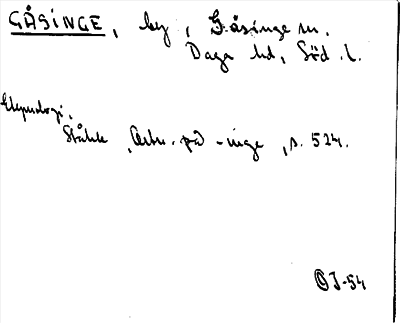 GÅSINGE, by, Gåsinge sn.
Daga hd, Söd. l.
Etymologi.
Ståhle, Ortn. på -inge, s. 524.
OJ-54